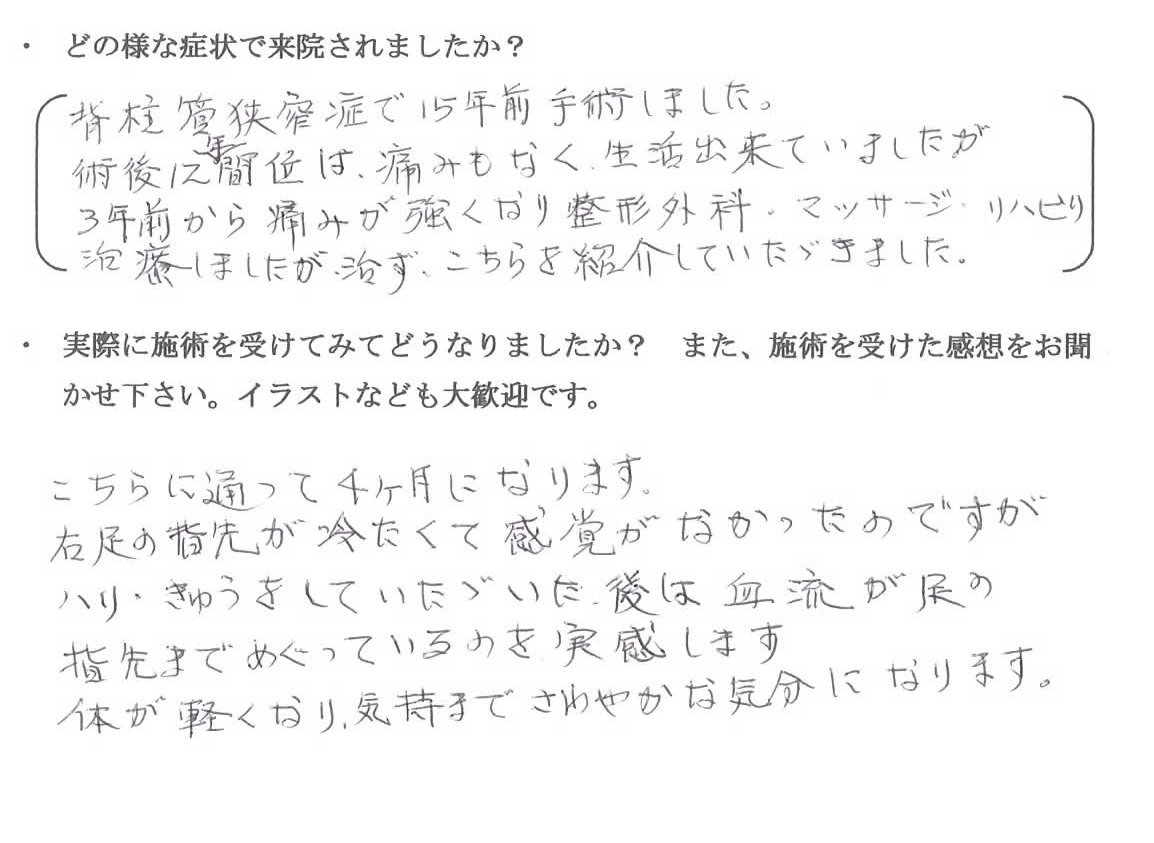 ・ どの様な症状で来院されましたか？
脊柱管狭窄症で15年前手術しました。
術後12年間位は、痛みもなく、生活出来ていましたが
3年前から痛みが強くなり整形外科・マッサージ・リハビリ
治療しましたが、治ず、こちらを紹介していたゞきました。
・ 実際に施術を受けてみてどうなりましたか？ また、施術を受けた感想をお聞
かせ下さい。イラストなども大歓迎です。
こちらに通って4ヶ月になります。
右足の指先が冷たくて感覚がなかったのですが
ハリ・きゅうをしていたゞいた、後は血流が足の
指先までめぐっているのを実感します
体が軽くなり、気持までさわやかな気分になります。